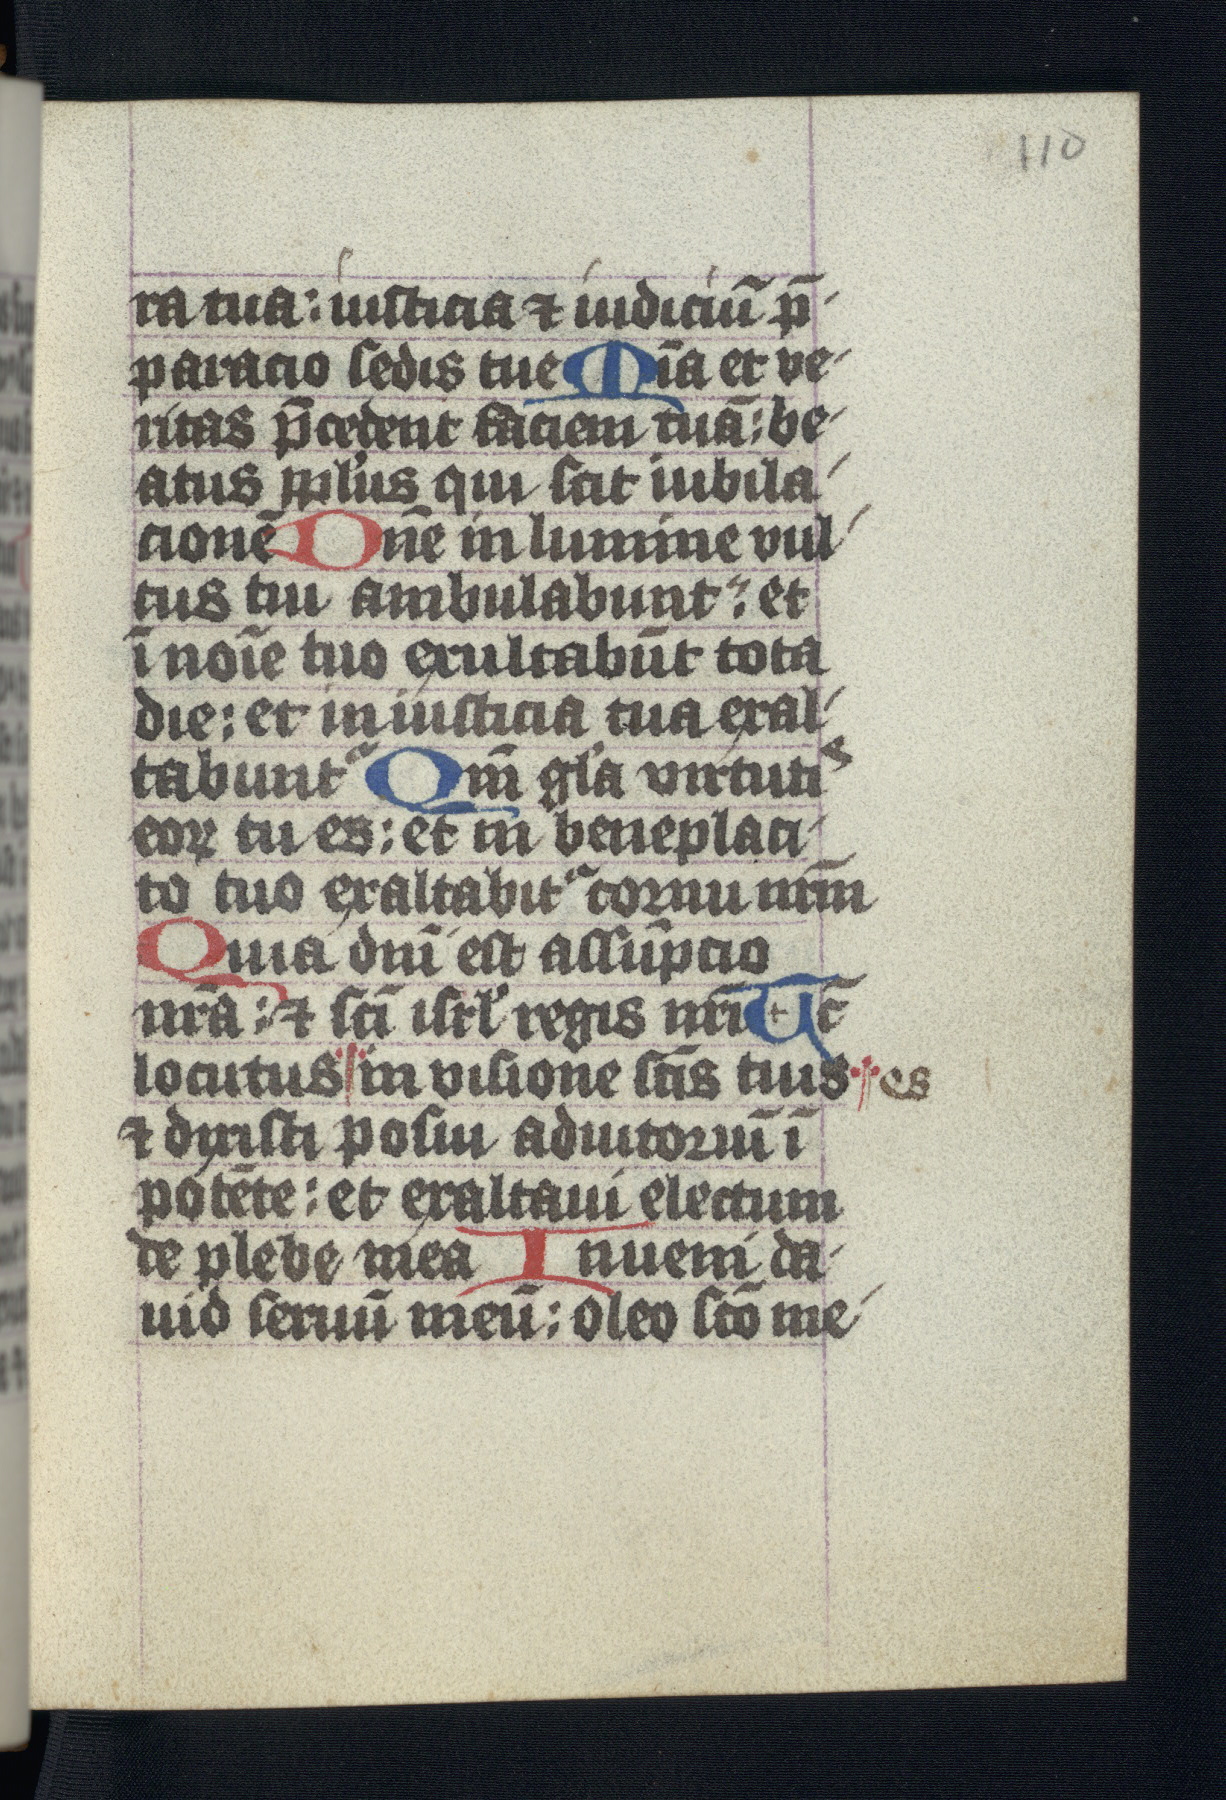 110
ra tua: iusticia ⁊ iudiciū p̄
paracio sedis tue Mīa et ve
ritas p̄cedent faciem tuā: be
atus ppl'us qui scit iubila
cionē Dn̄e in lumine vul
tus tui ambulabunt᷑: et
ī noīe tuo exultabūt tota
die: et in iusticia tua exal
tabunt᷑ Qm̄ gl'a virtutiˢ
eoꝝ tu es: et in beneplaci
to tuo exaltabit᷑ cornu nr̄m
Quia dn̄i est assūpcio
nr̄a: ⁊ sc̄i isrl' regis nr̄i Tc̄
locutus in visione sc̄is tuis es
⁊ dixisti posui adiutoriū ī
potēte: et exaltaui electum
de plebe mea Inueni da
uid seruū meū: oleo sc̄o me